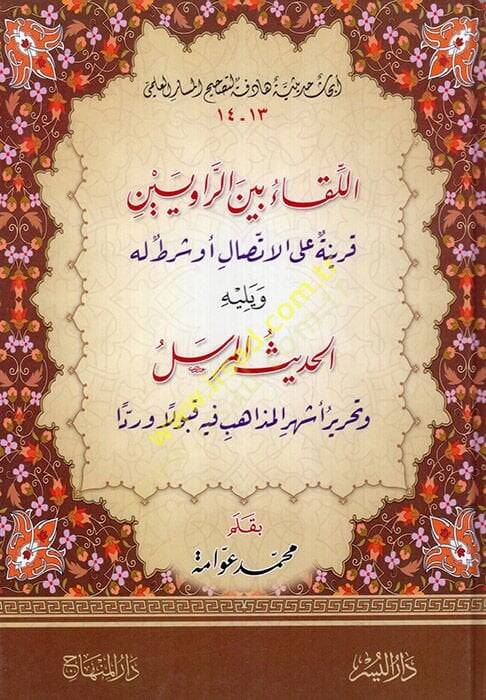 أبحاث حديثية هادفة لتصحيح المسار العلمي
١٣ - ١٤
اللّقاء بين الرّاويين
قرينةٌ على الاتّصالِ أو شرطٌ له
وَيَليْهِ
الحديثُ المرسلُ
وتحريرُ أشهرِ المذاهبِ فيه قبولًا وردًّا
بقلم
محمّد عوّامة
دَارُ اليُسْر
دَارُ المِنْهَاج